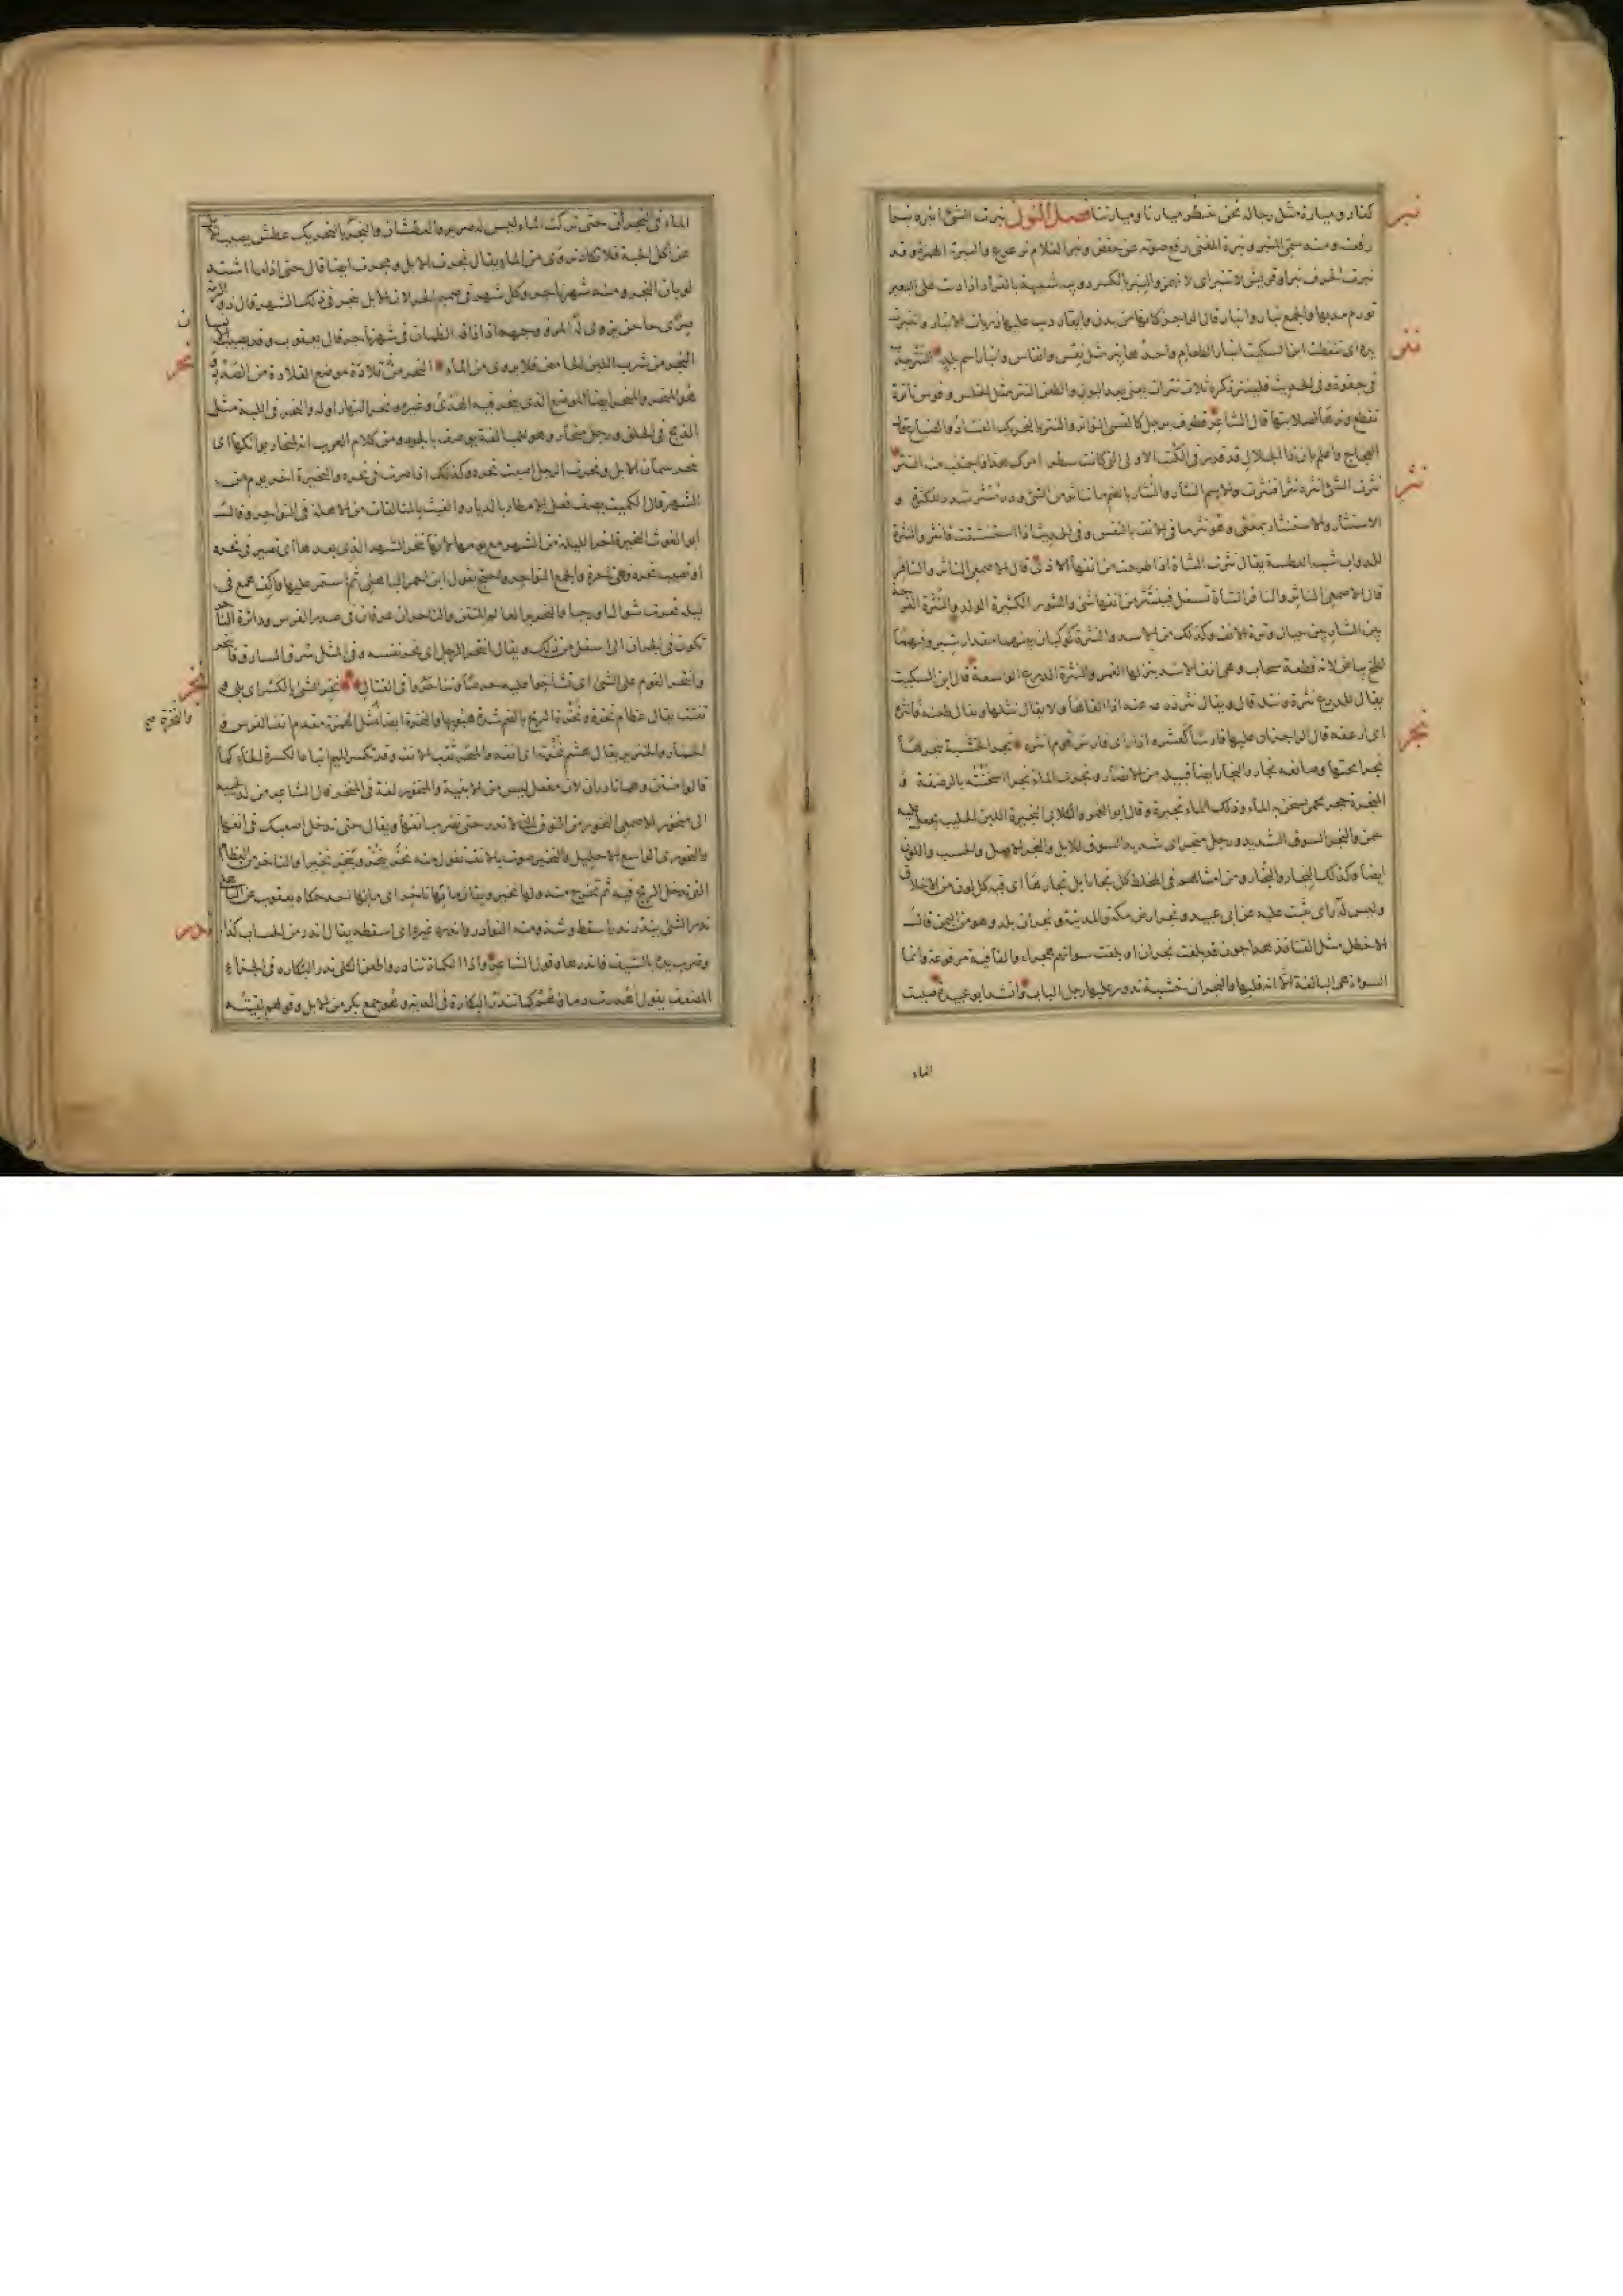 نبر
كفار وميارة مثل رجاله نحن ننتظر ميارنا وميارنا فصل النون نبرت الشئ انبره نبرا
رفعت ومنه سمى المنبر ونبرة المغنى رفع صوته عن خفض ونبر الغلام ترعرع والنبرة الهمزة وقد
نبرت الحرف نبرا وقريش لا تنبر اى لا تهمز والنبر بالكسر دويبة شبيهة بالقراد اذا دبت على البعير
تورم مدبها والجمع نبار وانبار قال الراجز كانها من بدن وايقار دبت عليها ذربات الانبار وانتبرت
يده اى تنفطت ابن السكيت انبار الطعام واحدها نبر مثل نقس وانقاس وانبار اسم بلد النتر جذب
نتر
فى جفوة وفى الحديث فلينتر ذكره ثلاث نترات يعنى بعد البول والطعن النتر مثل الخلس وقوس ناترة
تقطع وترها لصلابتها قال الشاعر قطوف برجل كالقسى النواتر والنتر بالتحريك الفساد والضياع قال
العجاج واعلم بان ذا الجلال قد قدر فى الكتب الاولى التى كانت سطر امرك هذا فاجتنب منه النتر
نثر
نثرت الشئ انثره نثرا فانتثر والاسم النثار والنثار بالضم ما تناثر من الشئ ودر منثر شدد للكثرة و
الانتثار والاستنثار بمعنى وهو نثر ما فى الانف بالنفس وفى الحديث اذا استنشقت فانثر والنثرة
للدواب شبه العطسة يقال نثرت الشاة اذا طرحت من انفها الاذى قال الاصمعى الناثر والنافر
قال الاصمعى الناثر والنافر الشاة تسعل فينتثر من انفها شئ والنثور الكثيرة الولد والنثرة الفرجة
بين الشاربين حيال وترة الانف وكذلك من الاسد والنثرة كوكبان بينهما مقدار شبر وفيهما
لطخ بياض كانه قطعة سحاب وهى انف الاسد ينزلها القمر والنثرة الدرع الواسعة قال ابن السكيت
يقال للدرع نثرة ونثلة قال ويقال نثر درعه عنه اذا القاها ولا يقال نثلها ويقال طعنه فانثره
اى ارعفه قال الراجز ان عليها فارسا كعشره اذا راى فارس قوم انثره نجر الخشبة نجرها
نجر
نجرا نحتها وصانعه نجار والنجار ايضا قبيلة من الانصار ونجرت الماء نجرا اسخنته بالرضفة و
المنجرة حجر محمى يسخن به الماء وذلك الماء نجيرة وقال ابو الغمر الكلابى النجيرة اللبن الحليب يجعل عليه
سمن والنجر السوق الشديد ورجل منجر اى شديد السوق للابل والنجر الاصل والحسب واللون
ايضا وكذلك النجار والنجار ومن امثالهم فى المخلط كل نجار ابل نجارها اى فيه كل لون من الاخلاق
وليس له راى يثبت عليه عن ابى عبيد ونجر ارض مكة والمدينة ونجران بلد وهو من اليمن قال
الاخطل مثل القنافذ هداجون قد بلغت نجران او بلغت سوآتهم هجر والقافية مرفوعة وانما
السوءة هى البالغة الا انه قلبها والنجران خشبة تدور عليها رجل الباب وانشد ابو عبيدة صببت
الماء
الماء فى النجران حتى تركت الماء ليس له صرير والعطشان والنجر بالتحريك عطش يصيب الابل
عن اكل الحبة فلا تكاد تروى من الماء يقال نجرت الابل ومجرت ايضا قال حتى اذا ما اشتد
لوبان النجر ومنه شهر ناجر وكل شهر فى صميم الحر لان الابل تنجر فى ذلك الشهر قال ذو الرمة
صرى آجن يزوى له المرء وجهه اذا ذاقه الظمآن فى شهر ناجر قال يعقوب وقد يصيب
النجر من شرب اللبن الحامض فلا يروى من الماء النحر من قلادة موضع القلادة من الصدر و
نحر
هو المنحر والمنحر ايضا الموضع الذى ينحر فيه الهدى وغيره ونحر النهار اوله والنحر فى اللبة مثل
الذبح فى الحلق ورجل منحار وهو للمبالغة يوصف بالجود ومن كلام العرب انه لمنحار بوائكها اى
ينحر سمان الابل ونحرت الرجل اصبت نحره وكذلك اذا صرت فى نحره والنحيرة آخر يوم من
الشهر قال الكميت يصف فعل الامطار بالديار والغيث بالمتالقات من الاهلة فى النواحر وقال
ابو الغوث النحيرة آخر ليلة من الشهر مع يومها لانها تنحر الشهر الذى بعدها اى تصير فى نحره
او تصيب نحره فهى ناحرة والجمع النواحر واحتج بقول ابن احمر الباهلى ثم استمر عليها واكف همع فى
ليلة نحرت شعبان او رجبا والنحرير العالم المتقن والناحران عرقان فى صدر الفرس ودائرة الناحر
تكون فى الجران الى اسفل من ذلك ويقال انتحر الرجل اى نحر نفسه وفى المثل سرق السارق فانتحر
وانتحر القوم على الشئ اى تشاحوا عليه حرصا وتناحروا فى القتال نخر الشئ بالكسر اى بلى و
نخر
تفتت يقال عظام نخرة ونخرة الريح بالضم شدة هبوبها والنخرة ايضا مثل الهمزة مقدم انف الفرس و
والنخرة صح
الحمار والخنزير يقال هشم نخرته اى انفه والمنخر ثقب الانف وقد تكسر الميم اتباعا لكسرة الخاء كما
قالوا منتن وهما نادران لان مفعل ليس من الابنية والمنخور لغة فى المنخر قال الشاعر من لد لحييه
الى منخوره الاصمعى النخور من النوق التى لا تدر حتى تضرب انفها ويقال حتى تدخل اصبعك فى انفها
والنخورى الواسع الاحليل والنخير صوت بالانف تقول منه نخر ينخر وينخر نخيرا والناخر من العظام
التى تدخل الريح فيه ثم تخرج منه ولها نخير ويقال ما بها ناخر اى ما بها احد حكاه يعقوب عن الباهلى
ندر الشئ يندر ندرا سقط وشذ ومنه النوادر واندره غيره اى اسقطه يقال اندر من الحساب كذا
وضرب يده بالسيف فاندرها وقول الشاعر واذا الكماة تنادروا طعن الكلى ندر البكارة فى الجزاء
المضعف يقول اهدرت دماؤهم كما تندر البكارة فى الدية وهو جمع بكر من الابل وقولهم لقيته